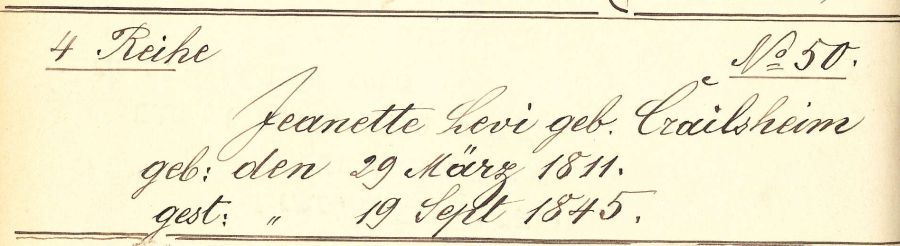 4 Reihe No 50.
Jeanette Levi geb. Crailsheim
geb: den 29 März 1811.
gest: " 19 Sept 1845.